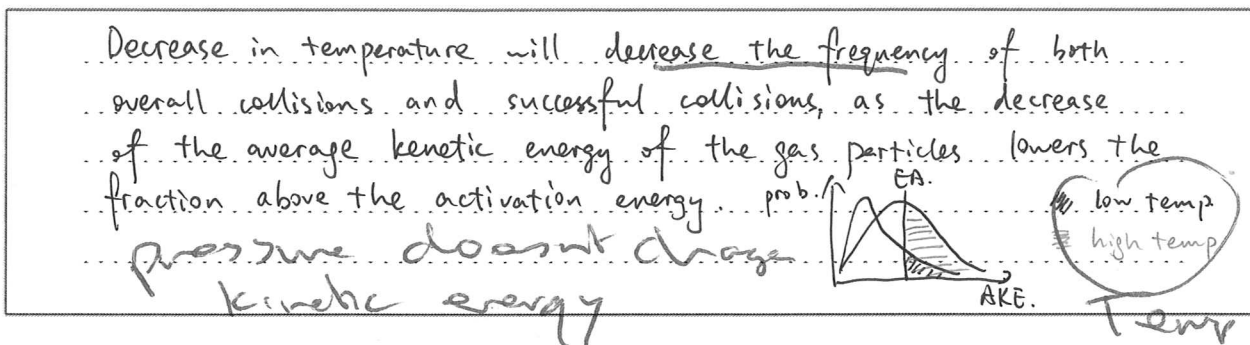 Decrease in temperature will decrease the frequency of both
overall collisions and successful collisions, as the decrease
of the average kenetic energy of the gas particles lowers the
fraction above the activation energy. prob. EA. low temp
high temp
pressure doesnt change
kinetic energy
AKE.
Temp